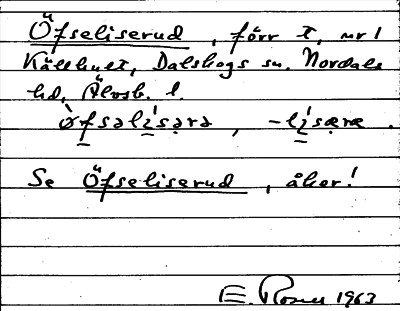 Öfseliserud, förr t, nr 1
Källhult, Dalskogs sn. Nordals
hd, Älvsb. l.
òfsəlísərə, -lísæræ.
Se Öfseliserud, åker!
E. Rosen 1963